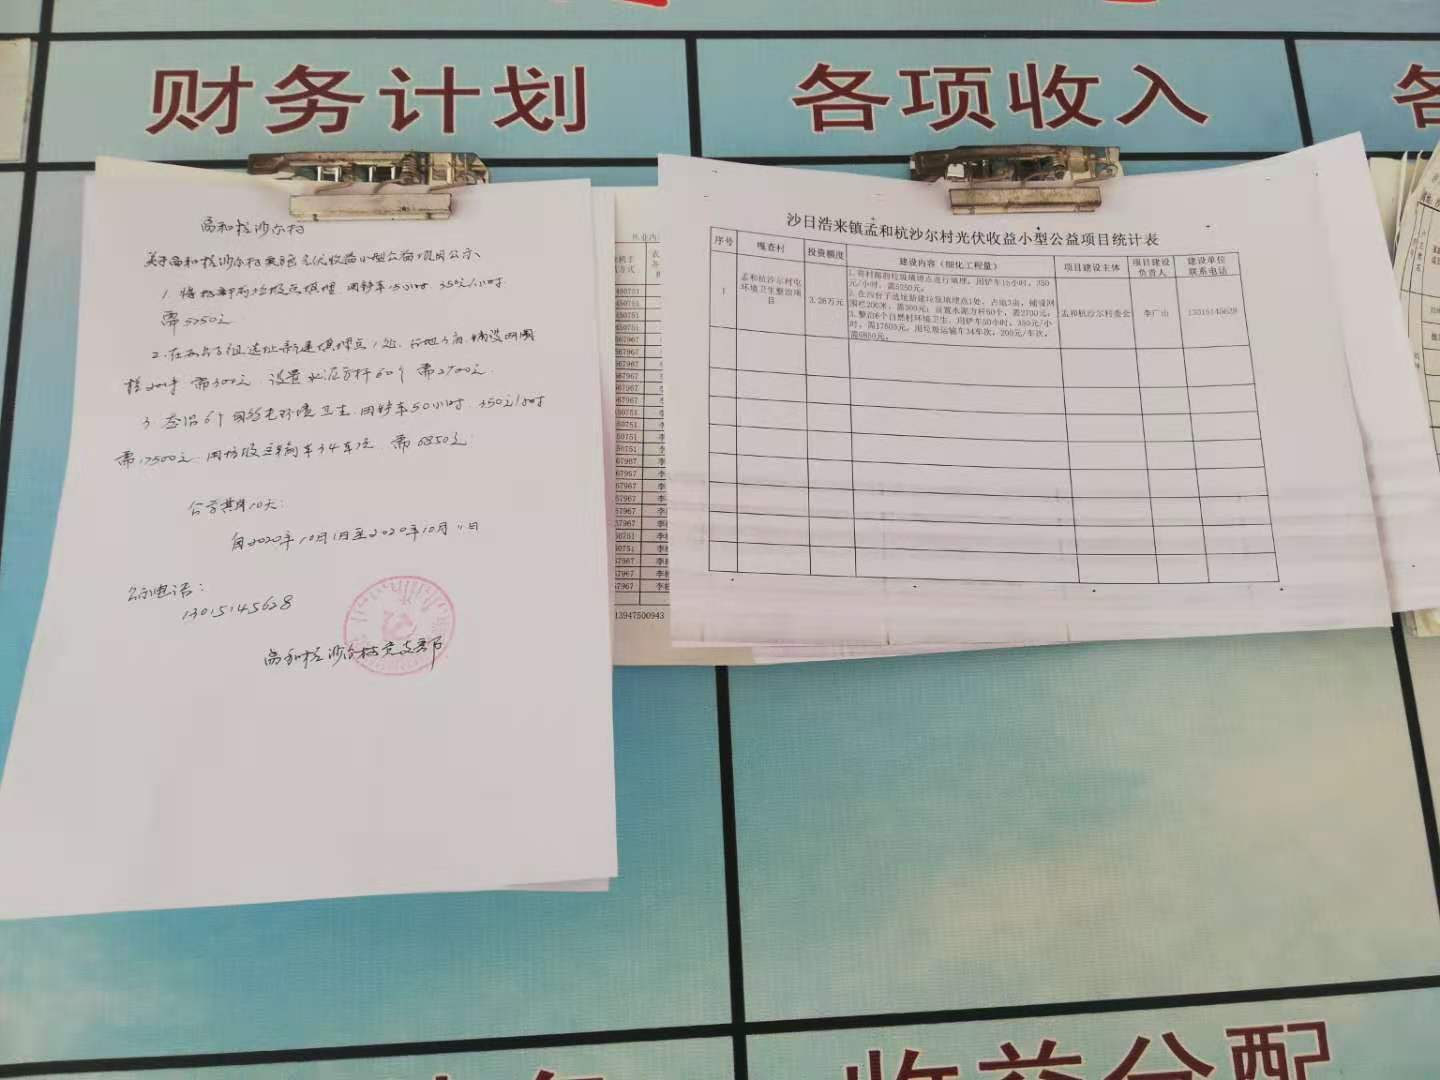 财务计划
各项收入
各
孟和杭沙尔村
关于孟和杭沙尔村实施光伏收益小型公益项目公示
1、将村部前垃圾点填埋,用铲车15小时,350元/小时
需5250元
2、在西台子组选址新建填埋点1处,占地3亩,铺设网围
栏200米,需300元,设置水泥方杆60个,需2700元
3、整治6个自然屯环境卫生,用铲车50小时,350元/小时
需17500元,用垃圾运输车34车次,需6850元
公示期10天:
自2020年10月1日至2020年10月11日
公示电话:
13015145628
孟和杭沙尔村党支部
沙日浩来镇孟和杭沙尔村光伏收益小型公益项目统计表
序号 嘎查村 投资额度 建设内容(细化工程量) 项目建设主体 项目建设负责人 建设单位联系电话
1 孟和杭沙尔村屯环境卫生整治项目 3.26万元
1.将村部前垃圾填埋点进行填埋,用铲车15小时,350
元/小时,需5250元。
2.在西台子选址新建垃圾填埋点1处,占地3亩,铺设网
围栏200米,需300元;设置水泥方杆60个,需2700元;
3.整治6个自然村环境卫生,用铲车50小时,350元/小
时,需17500元,用垃圾运输车34车次,200元/车次,
需6850元。
孟和杭沙尔村委会 李广山 13015145628
13947500943
收益分配